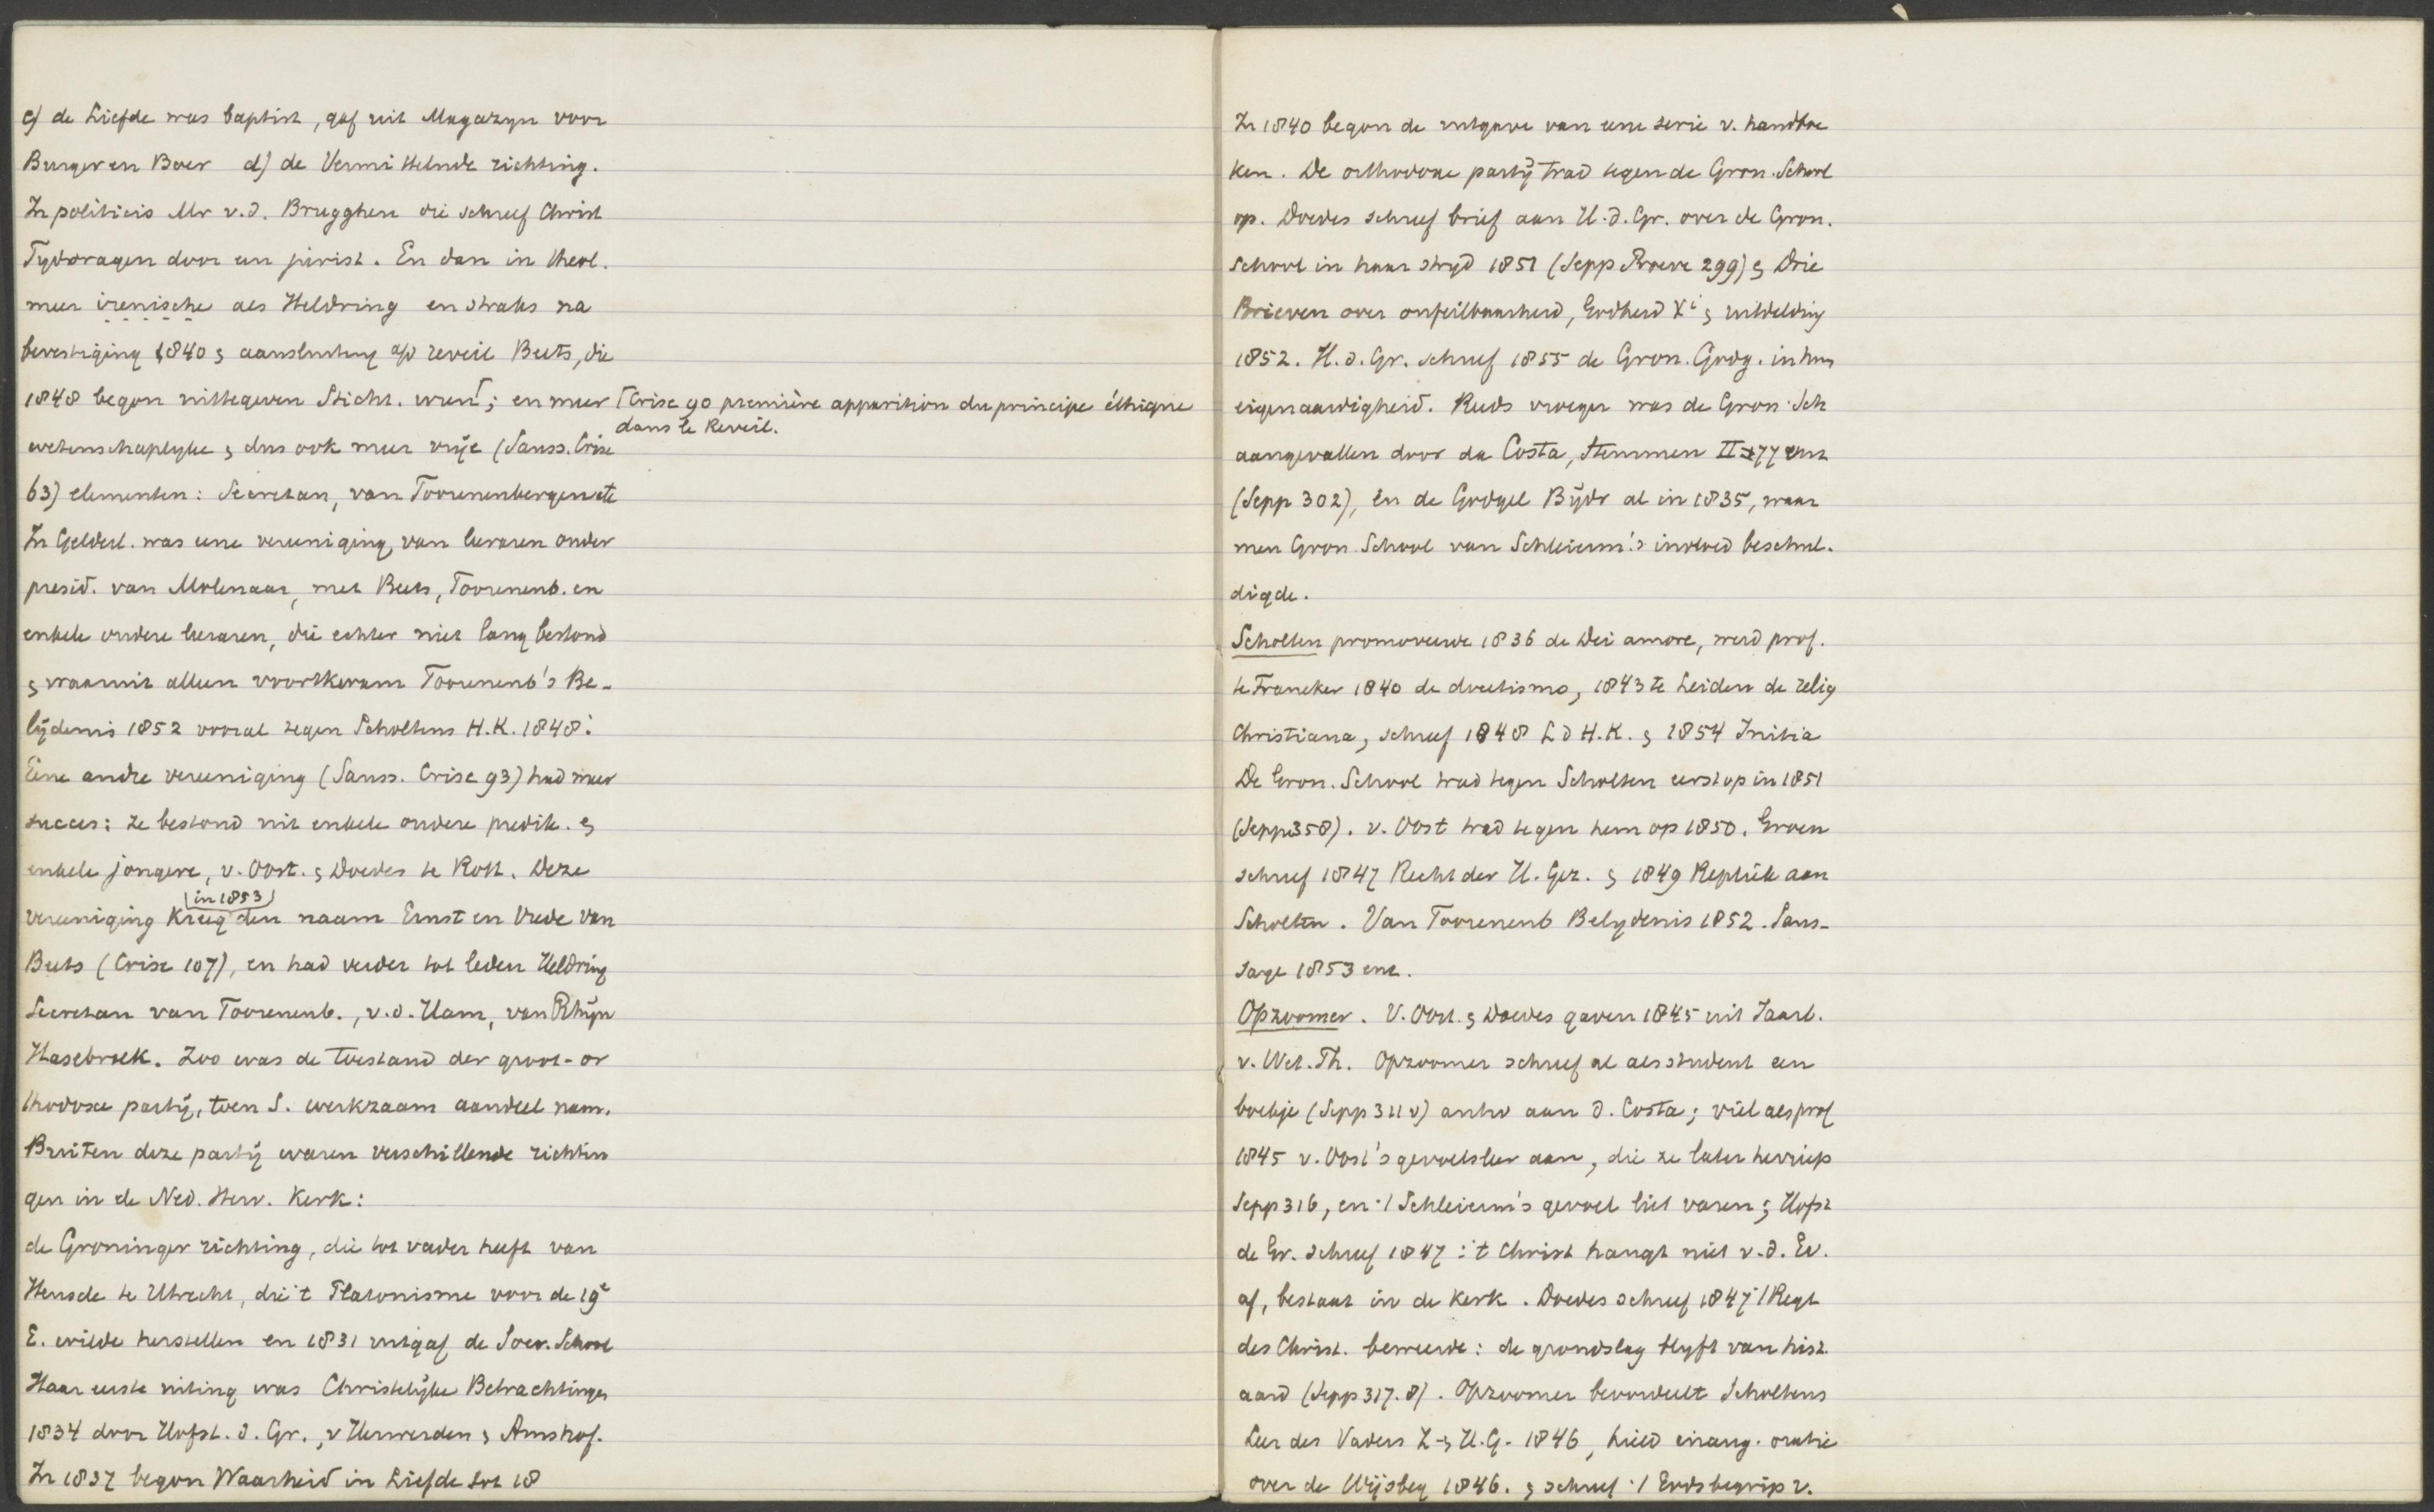 c) de Liefde was baptist, gaf uit Magazyn voor
Burger en Boer d) de Vermittelnde richting.
In politicis Mr v.d. Brugghen die schreef Christ
Tydvragen door een jurist. En dan in theol.
meer irenische als Heldring en straks na
bevestiging 1840 & aansluiting a/d reveil Beets, die
1848 begon uittegeven Sticht. uren⌈; en meer
⌈Crise 90 première apparition du principe éthique
dans le Reveil.
wetenschaplyke & dus ook meer vrije (Sauss. Crise
63) elementen: Secretan, van Toorenenbergen etc
In Gelderl. was eene vereeniging, van leeraren onder
presid. van Molenaar, met Beets, Toorenenb. en
enkele andere leeraren, die echter niet lang bestond
& waaruit alleen voortkwam Toorenenb's Be-
lijdenis 1852 vooral tegen Scholtens H.K. 1848.
Eene andre vereeniging (Sauss. Crise 93) had meer
succes: ze bestond uit enkele oudere predik. &
enkele jongere, v. Oost. & Doedes te Rott. Deze
(in 1853)
vereeniging kreeg den naam Ernst en Vrede van
Beets (Crise 107), en had verder tot leden Heldring
Secretan van Toorenenb., v.d. Ham, van Rhijn
Hasebroek. Zoo was de toestand der groot-or
thodoxe partij, toen S. werkzaam aandeel nam.
Buiten deze partij waren verschillende richtin
gen in de Ned. Herv. Kerk:
de Groninger richting, die tot vader heeft van
Heusde te Utrecht, die 't Platonisme voor de 19e
E. wilde herstellen en 1831 uitgaf de Socr. School
Haar eerste uiting was Christelijke Betrachtingen
1834 door Hofst. d. Gr., v Herwerden & Amshof.
In 1837 begon Waarheid in Liefde tot 18
In 1840 begon de uitgave van eene serie v. handboe
ken. De orthodoxe partij trad tegen de Gron. School
op. Doedes schreef brief aan H.d. Gr. over de Gron.
school in haar stryd 1851 (Sepp Proeve 299) & Drie
Brieven over onfeilbaarheid, Godheid Xi & uitdelding
1852. H.d. Gr. schreef 1855 de Gron. Gody. in hun
eigenaardigheid. Reeds vroeger was de Gron. Sch
aangevallen door da Costa, Stemmen II 277 enz
(Sepp 302), en de Godgel Bijdr al in 1835, waar
men Gron. School van Schleierm.'s invloed beschul.
digde.
Scholten promoveerde 1836 de Dei amore, werd prof.
te Franeker 1840 de docetismo, 1843 te Leiden de relig
Christiana, schreef 1848 L d H.K. & 1854 Initia
De Gron. School trad tegen Scholten eerst op in 1851
(Sepp 358). v. Oost trad tegen hem op 1850. Groen
schreef 1847 Recht der H. Gez. & 1849 Repliek aan
Scholten. Van Toorenenb Belydenis 1852. Saus-
saye 1853 enz.
Opzoomer. V. Oost. & Doedes gaven 1845 uit Jaarb.
v. Wet. Th. Opzoomer schreef al als student een
boekje (Sepp 311 v) antw aan d. Costa; viel als prof
1845 v. Oost's gevoelsleer aan, die ze later herriep
Sepp 316, en ·/ Schleierm's gevoel liet varen; Hofst
de Gr. schreef 1847: 't Christ hangt niet v.d. Ev.
af, bestaat in de kerk. Doedes schreef 1847 ·/ Regt
des Christ. beweerde: de grondslag blyft van hist.
aard (Sepp 317.8). Opzoomer beoordeelt Scholtens
Leer des Vaders Z & H.G. 1846, hield inaug. oratie
over de Wijsbeg 1846. & schreef ·/ Godsbegrip v.